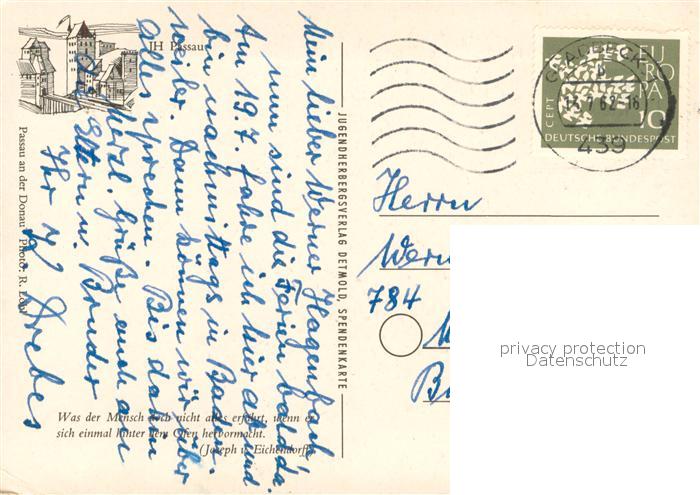 JH Passau
Mein lieber Werner Hagenbach
nun sind die Ferien bald da.
Am 19.7. fahre ich hier ab und
bin nachmittags in Baden
weiler. Dann können wir über
alles sprechen. Bis dann
herzl. Grüße auch an
die Eltern u. Bruder
Ihr K. Drebes
Passau an der Donau Photo: R. Löbl
Was der Mensch doch nicht alles erfährt, wenn er
sich einmal hinter dem Ofen hervormacht.
(Joseph v. Eichendorff)
JUGENDHERBERGSVERLAG DETMOLD, SPENDENKARTE
GLADBECK
62-16
439
EUROPA
CEPT
10
DEUTSCHE BUNDESPOST
Herrn
784
privacy protection
Datenschutz